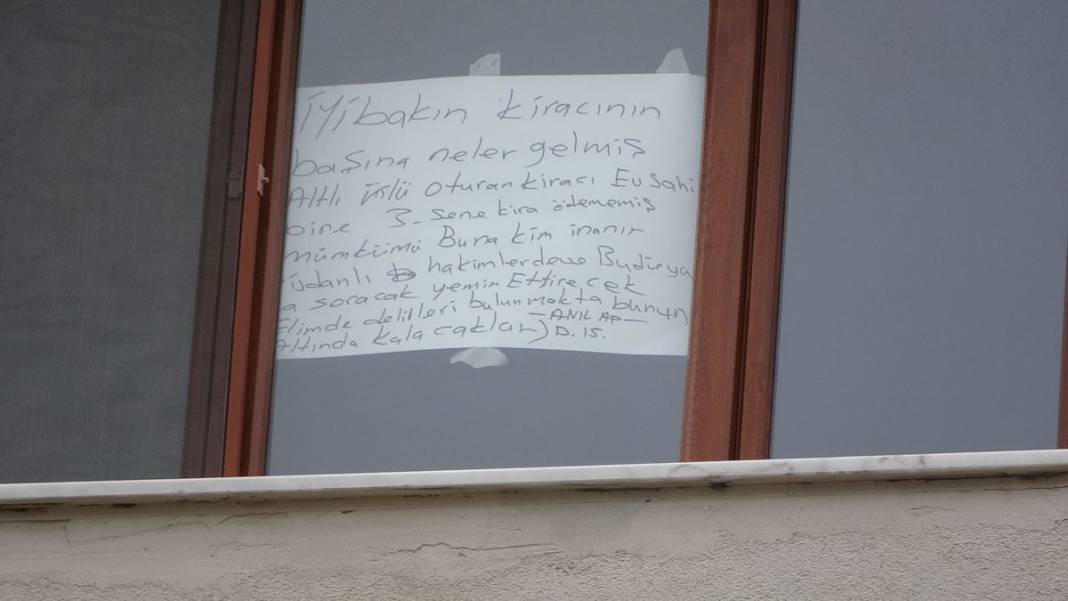 İyibakın kiracının
başına neler gelmiş
Altlı üstlü oturan kiracı Ev sahi
bine 3. sene kira ödememiş
mümkümü Buna kim inanır
hakimlerde Budünya
soracak yemin Ettirecek
Elimde delilleri bulunmakta bunun
Altında kalacaklar) —ANIL AP—
D. 15.